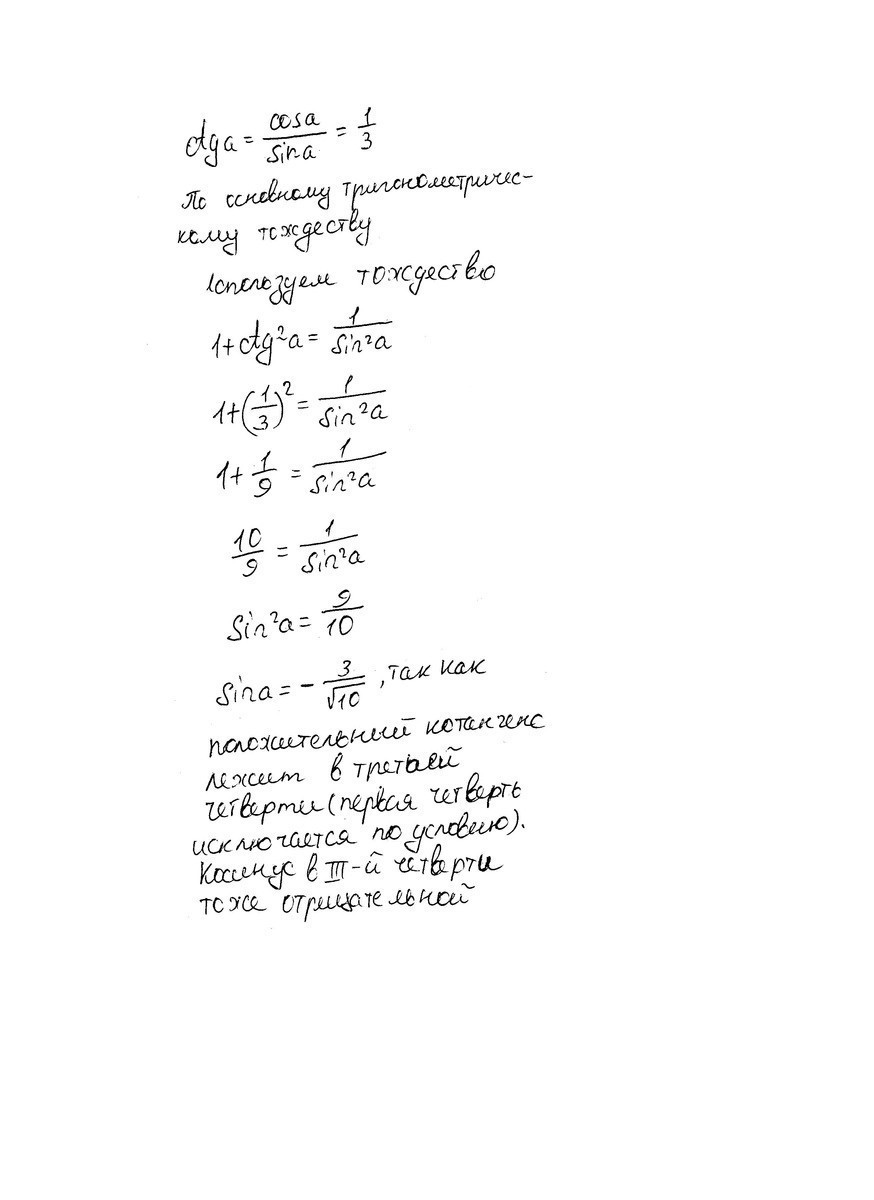 ctga = cosa/sina = 1/3
По основному тригонометричес-
кому тождеству
используем тождество
1+ctg²a = 1/sin²a
1+(1/3)² = 1/sin²a
1+ 1/9 = 1/sin²a
10/9 = 1/sin²a
sin²a = 9/10
sina = - 3/√10 , так как
положительный котангенс
лежит в третьей
четверти (первая четверть
исключается по условию).
Косинус в III-й четверти
тоже отрицательной